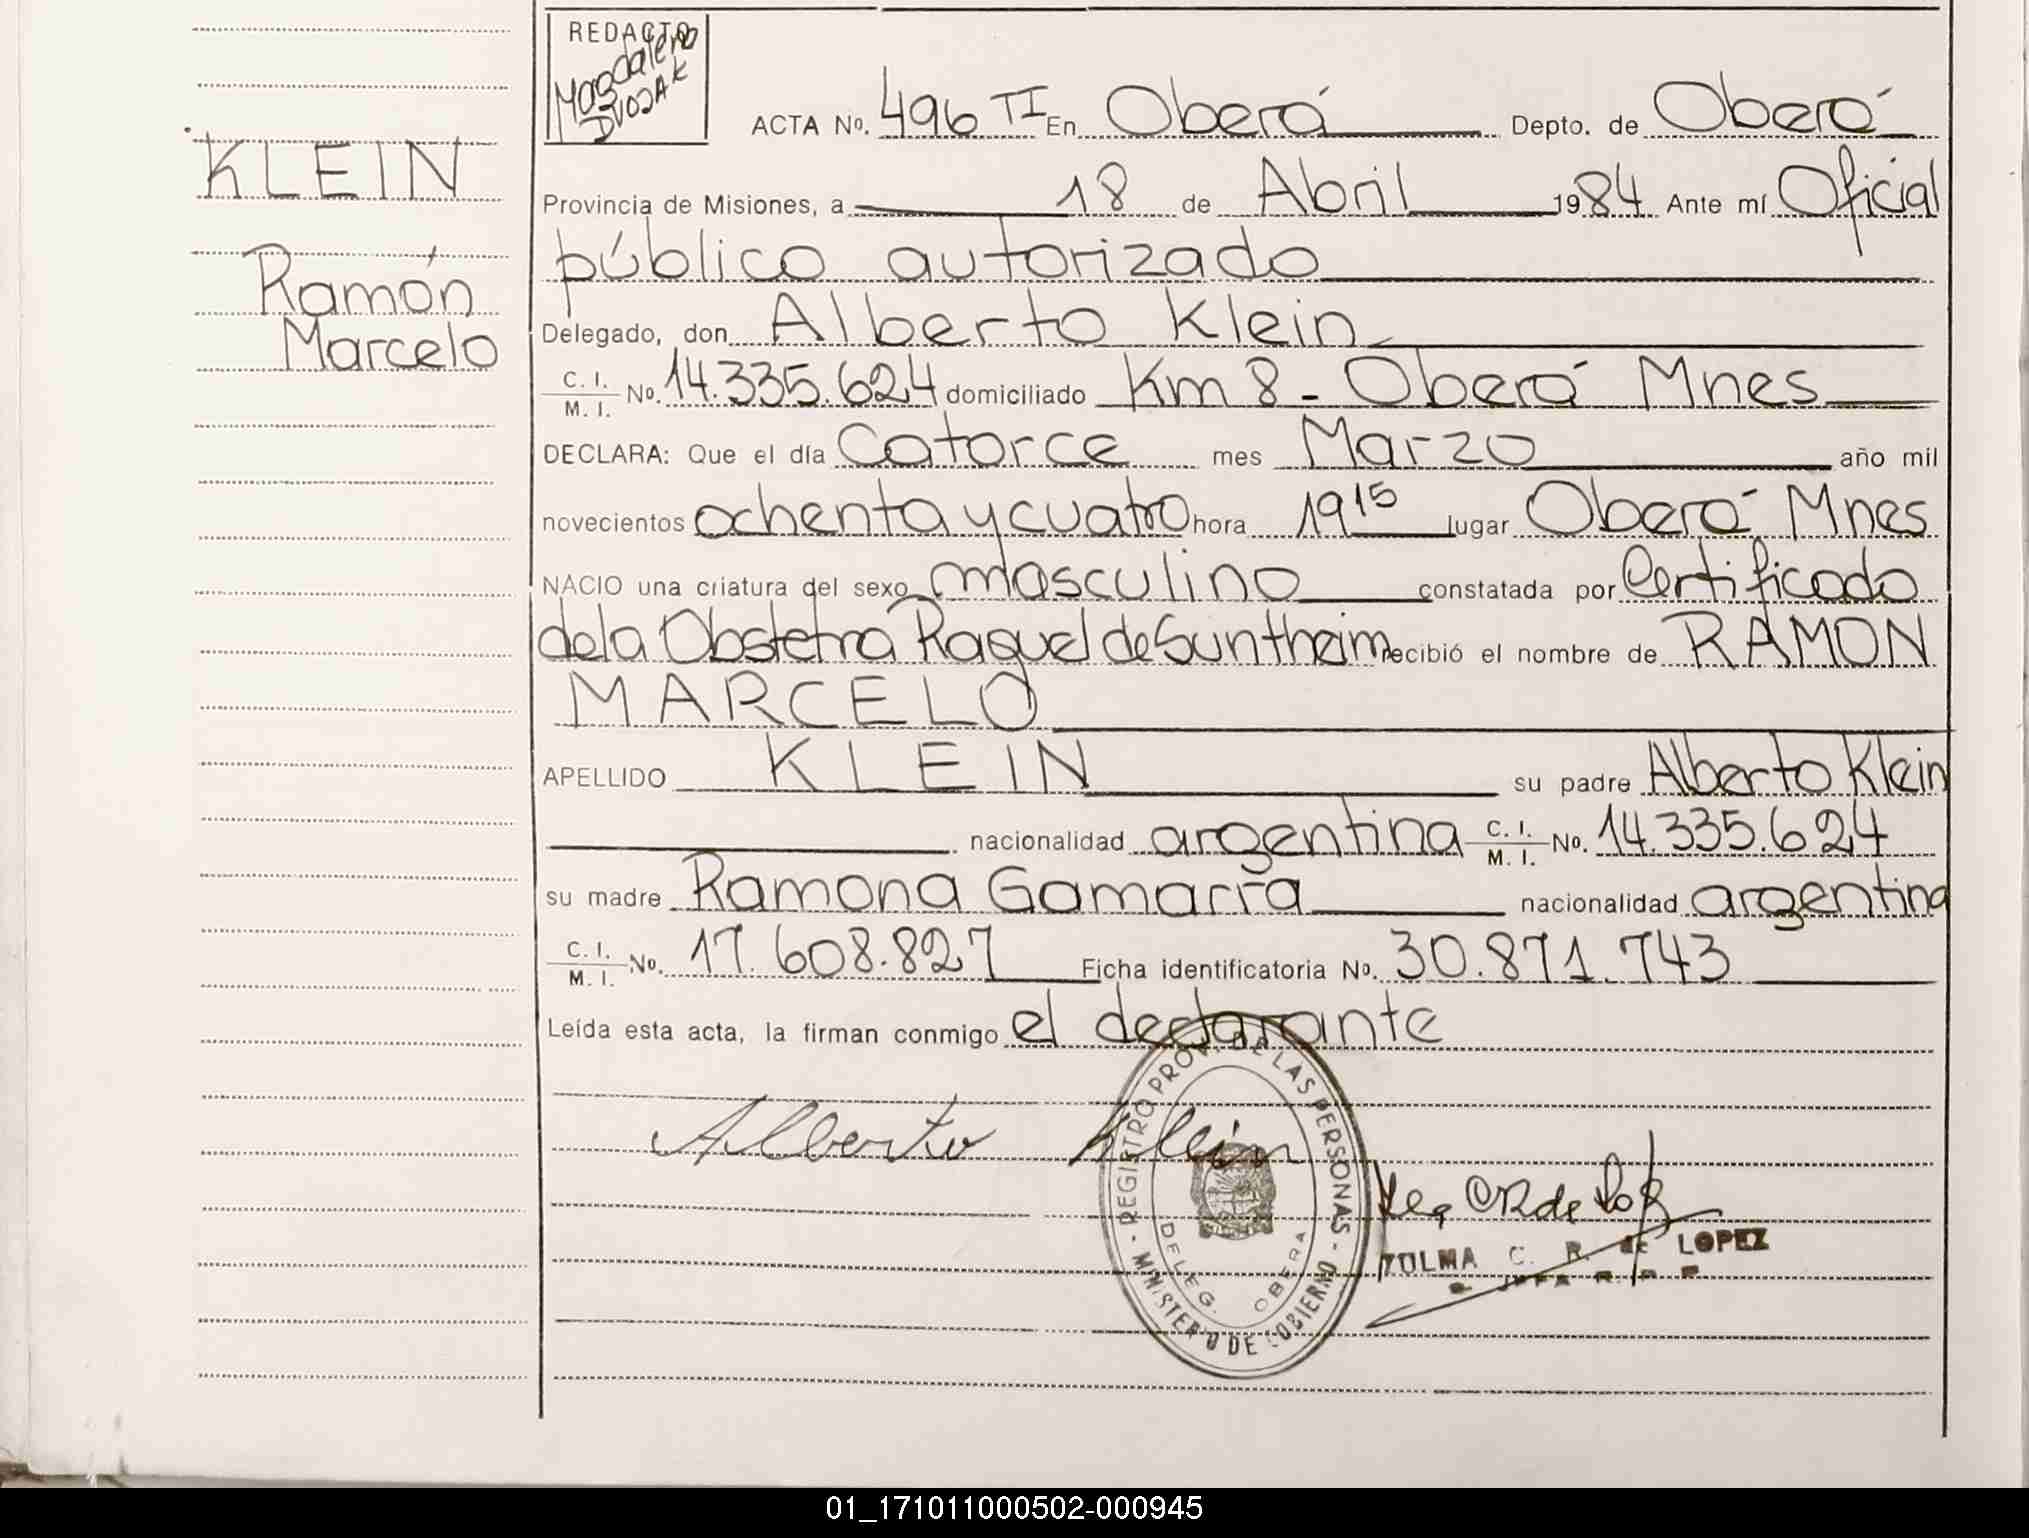 REDACTO
Magdalena
DVOJAK
ACTA No. 496 TI En Oberá Depto. de Oberá
KLEIN
Provincia de Misiones, a 18 de Abril 1984 Ante mí Oficial
público autorizado
Ramón
Marcelo
Delegado, don Alberto Klein
C. I. / M. I. No. 14.335.624 domiciliado Km 8 - Oberá Mnes
DECLARA: Que el día Catorce mes Marzo año mil
novecientos ochenta y cuatro hora 19 15 lugar Oberá Mnes
NACIO una criatura del sexo masculino constatada por Certificado
de la Obstetra Raquel de Suntheim recibió el nombre de RAMON
MARCELO
APELLIDO KLEIN su padre Alberto Klein
nacionalidad argentina C. I. / M. I. No. 14.335.624
su madre Ramona Gamarra nacionalidad argentina
C. I. / M. I. No. 17.608.827 Ficha identificatoria No. 30.871.743
Leída esta acta, la firman conmigo el declarante
Alberto Klein
REGISTRO PROV. DE LAS PERSONAS - MINISTERIO DE GOBIERNO -
DELEG. OBERA
C. R. de LOPEZ
01_171011000502-000945